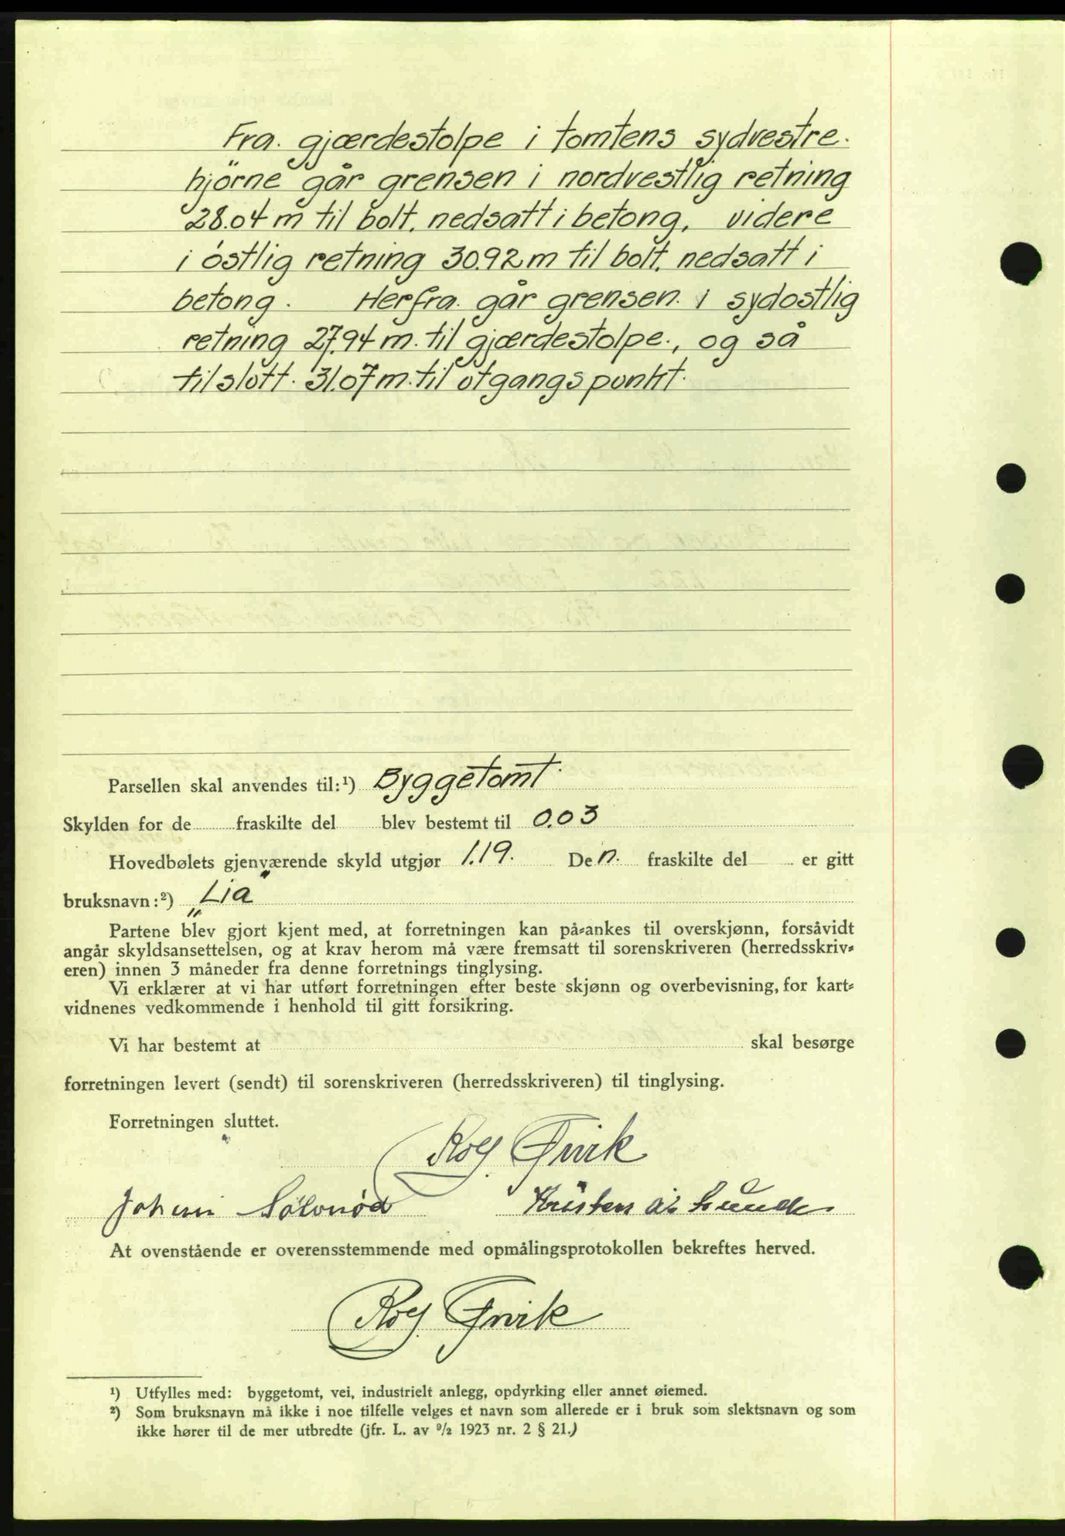 Fra gjærdestolpe i tomtens sydvestre
hjörne går grensen i nordvestlig retning
28.04 m til bolt, nedsatt i betong, videre
i östlig retning 30.92 m til bolt, nedsatt i
betong. Herfra går grensen i sydostlig
retning 27.94 m. til gjærdestolpe, og så
tilslutt 31.07 m. til utgangspunkt.
Parsellen skal anvendes til:¹) Byggetomt.
Skylden for de fraskilte del blev bestemt til 0.03
Hovedbølets gjenværende skyld utgjør 1.19. Den fraskilte del er gitt
bruksnavn:²) "Lia"
Partene blev gjort kjent med, at forretningen kan på-ankes til overskjønn, forsåvidt
angår skyldsansettelsen, og at krav herom må være fremsatt til sorenskriveren (herredsskriv-
eren) innen 3 måneder fra denne forretnings tinglysing.
Vi erklærer at vi har utført forretningen efter beste skjønn og overbevisning, for kart-
vidnenes vedkommende i henhold til gitt forsikring.
Vi har bestemt at skal besørge
forretningen levert (sendt) til sorenskriveren (herredsskriveren) til tinglysing.
Forretningen sluttet.
Rolf
Johan
At ovenstående er overensstemmende med opmålingsprotokollen bekreftes herved.
Rolf
¹) Utfylles med: byggetomt, vei, industrielt anlegg, opdyrking eller annet øiemed.
²) Som bruksnavn må ikke i noe tilfelle velges et navn som allerede er i bruk som slektsnavn og som
ikke hører til de mer utbredte (jfr. L. av ⁹/₂ 1923 nr. 2 § 21.)